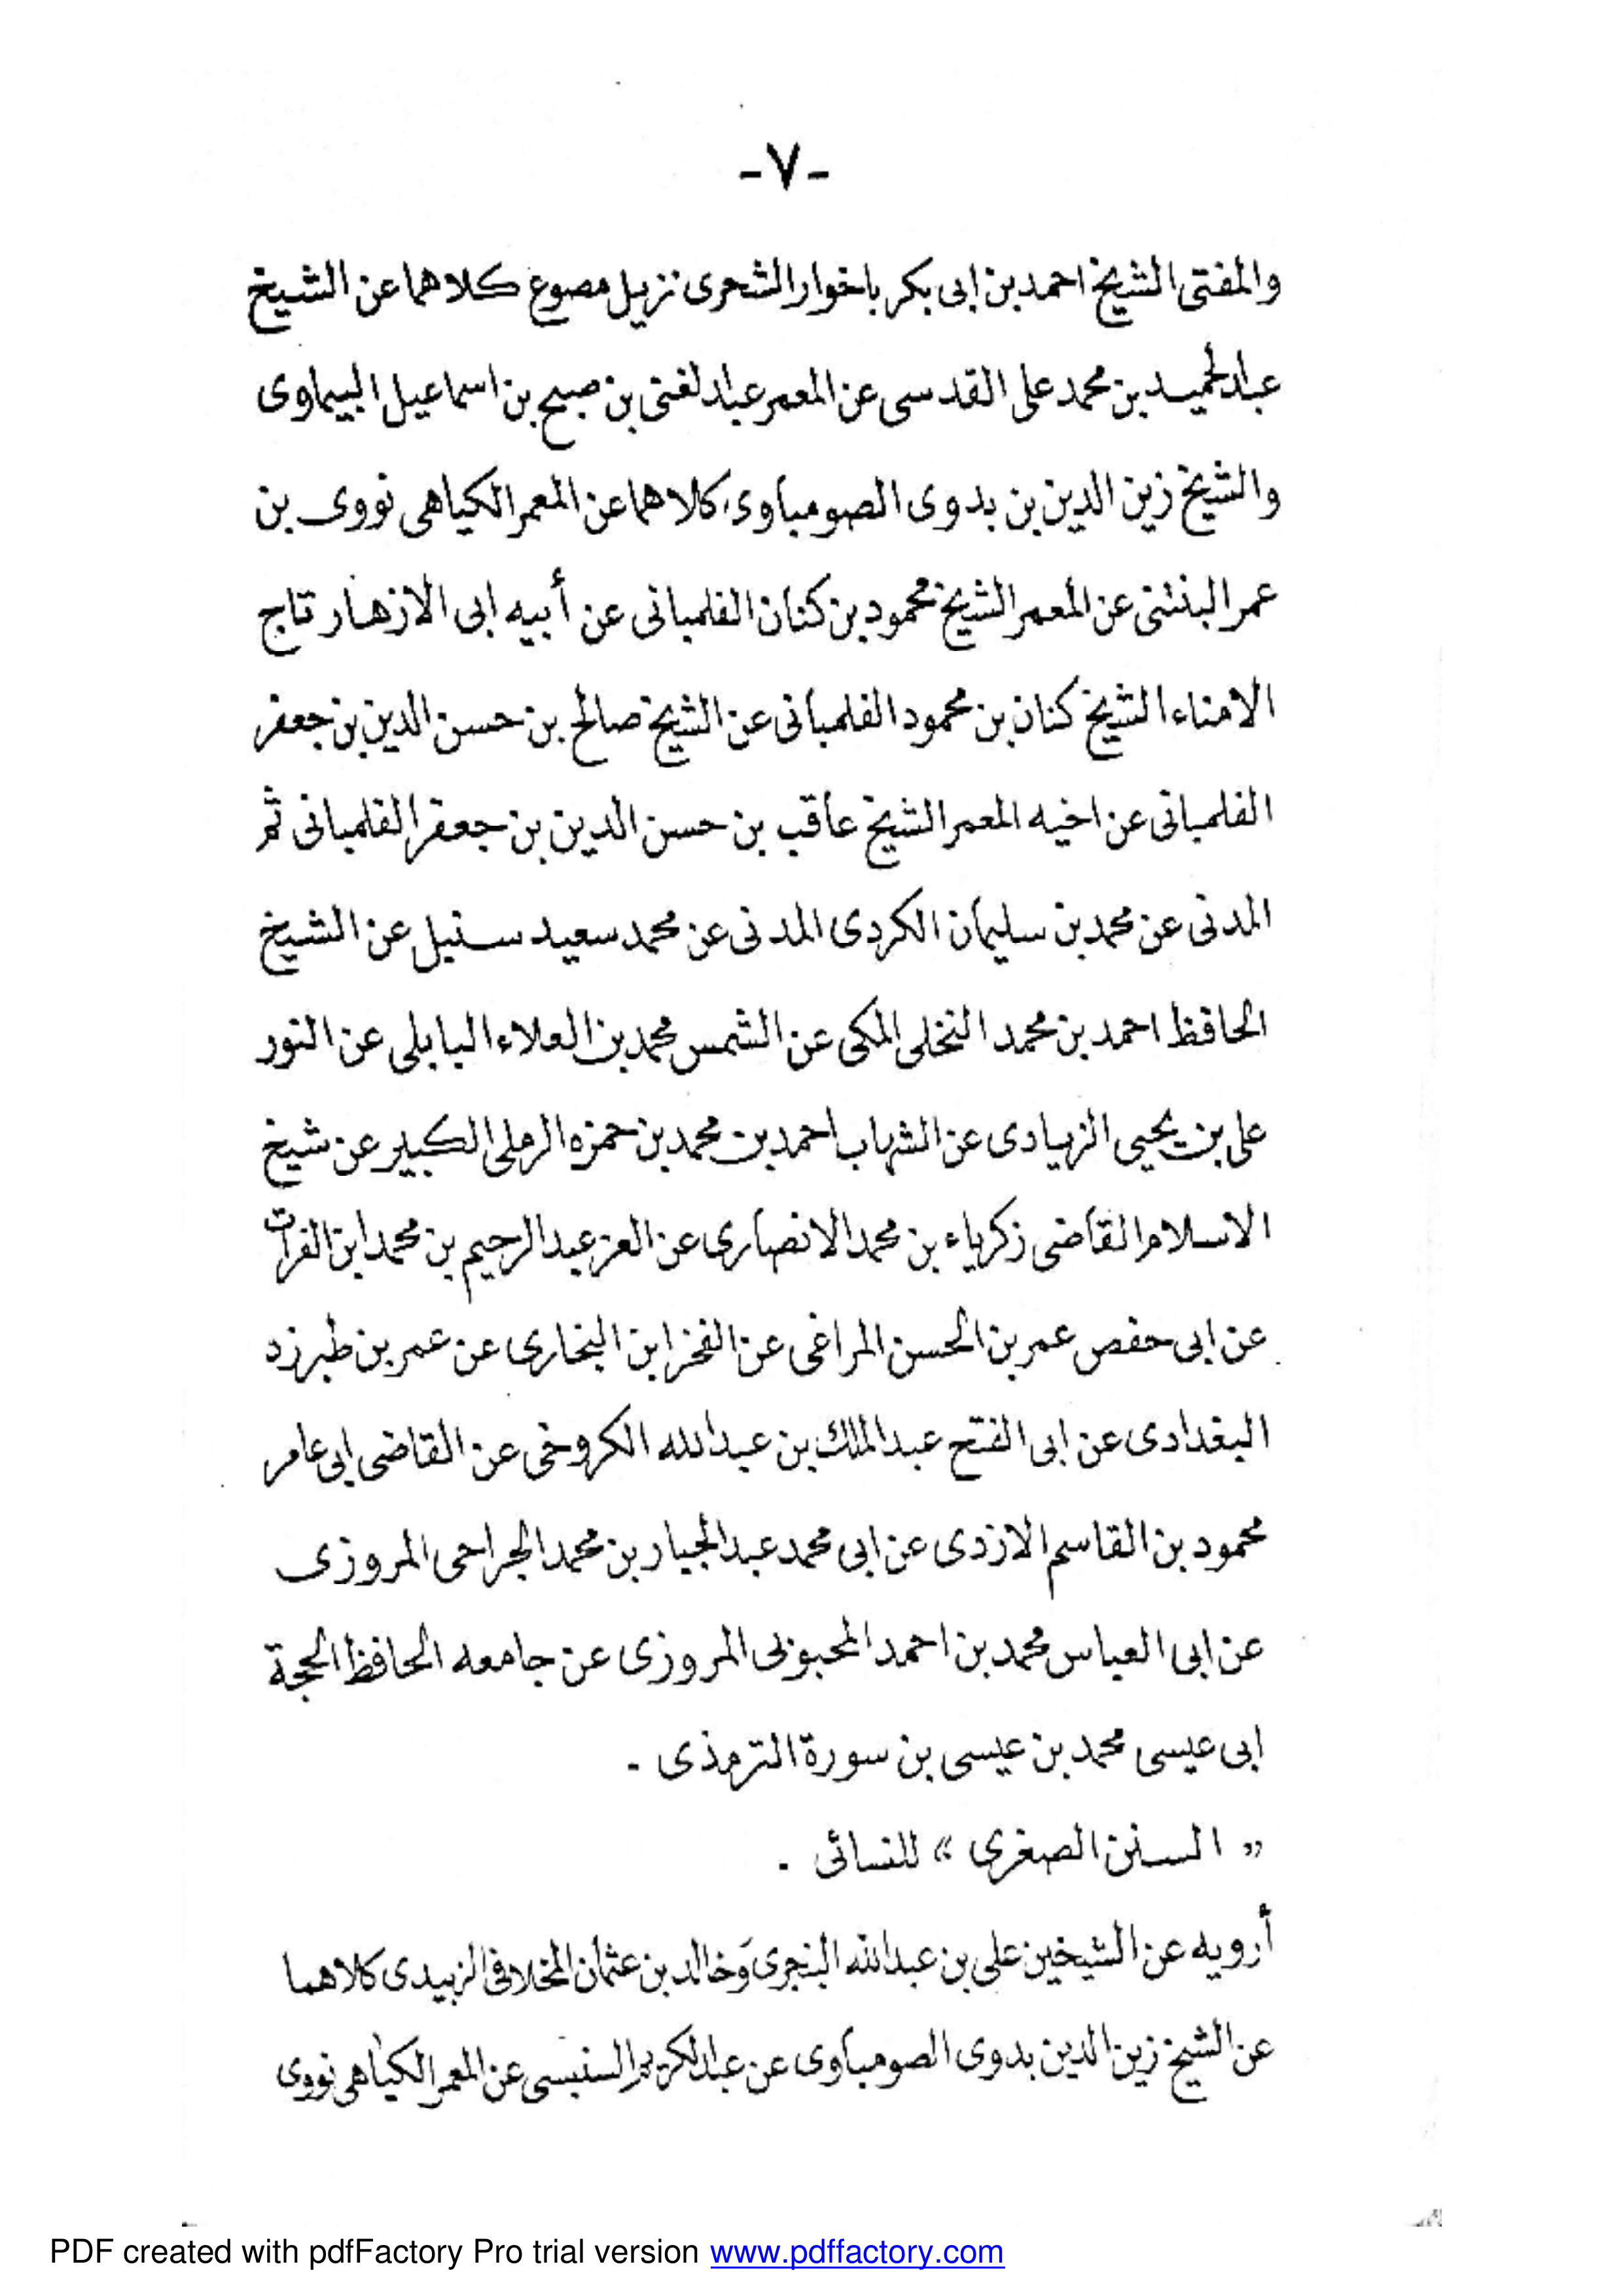 -٧-
والمفتى الشيخ احمد بن ابى بكر باخوار الشحرى نزيل مصوع كلاهما عن الشيخ
عبدالحميد بن محمد على القدسى عن المعمر عبدالغنى بن صبح بن اسماعيل البيماوى
والشيخ زين الدين بن بدوى الصومباوى كلاهما عن المعمر الكياهى نووى بن
عمر البنتنى عن المعمر الشيخ محمود بن كنان الفلمبانى عن أبيه ابى الازهار تاج
الامناء الشيخ كنان بن محمود الفلمبانى عن الشيخ صالح بن حسن الدين بن جعفر
الفلمبانى عن اخيه المعمر الشيخ عاقب بن حسن الدين بن جعفر الفلمبانى ثم
المدنى عن محمد بن سليمان الكردى المدنى عن محمد سعيد سنبل عن الشيخ
الحافظ احمد بن محمد النخلى المكى عن الشمس محمد بن العلاء البابلى عن النور
على بن يحيى الزيادى عن الشهاب احمد بن محمد بن حمزه الرملى الكبير عن شيخ
الاسلام القاضى زكرياء بن محمد الانصارى عن العز عبدالرحيم بن محمد ابن الفرات
عن ابى حفص عمر بن الحسن المراغى عن الفخر ابن البخارى عن عمر بن طبرزد
البغدادى عن ابى الفتح عبدالملك بن عبدالله الكروخى عن القاضى ابى عامر
محمود بن القاسم الازدى عن ابى محمد عبدالجبار بن محمد الجراحى المروزى
عن ابى العباس محمد بن احمد المحبوبى المروزى عن جامعه الحافظ الحجة
ابى عيسى محمد بن عيسى بن سورة الترمذى .
« السنن الصغرى » للنسائى .
أرويه عن الشيخين على بن عبدالله البنجرى وَخالد بن عثمان المخلافى الزبيدى كلاهما
عن الشيخ زين الدين بدوى الصومباوى عن عبدالكريم السنبسى عن المعمر الكياهى نووى
PDF created with pdfFactory Pro trial version www.pdffactory.com